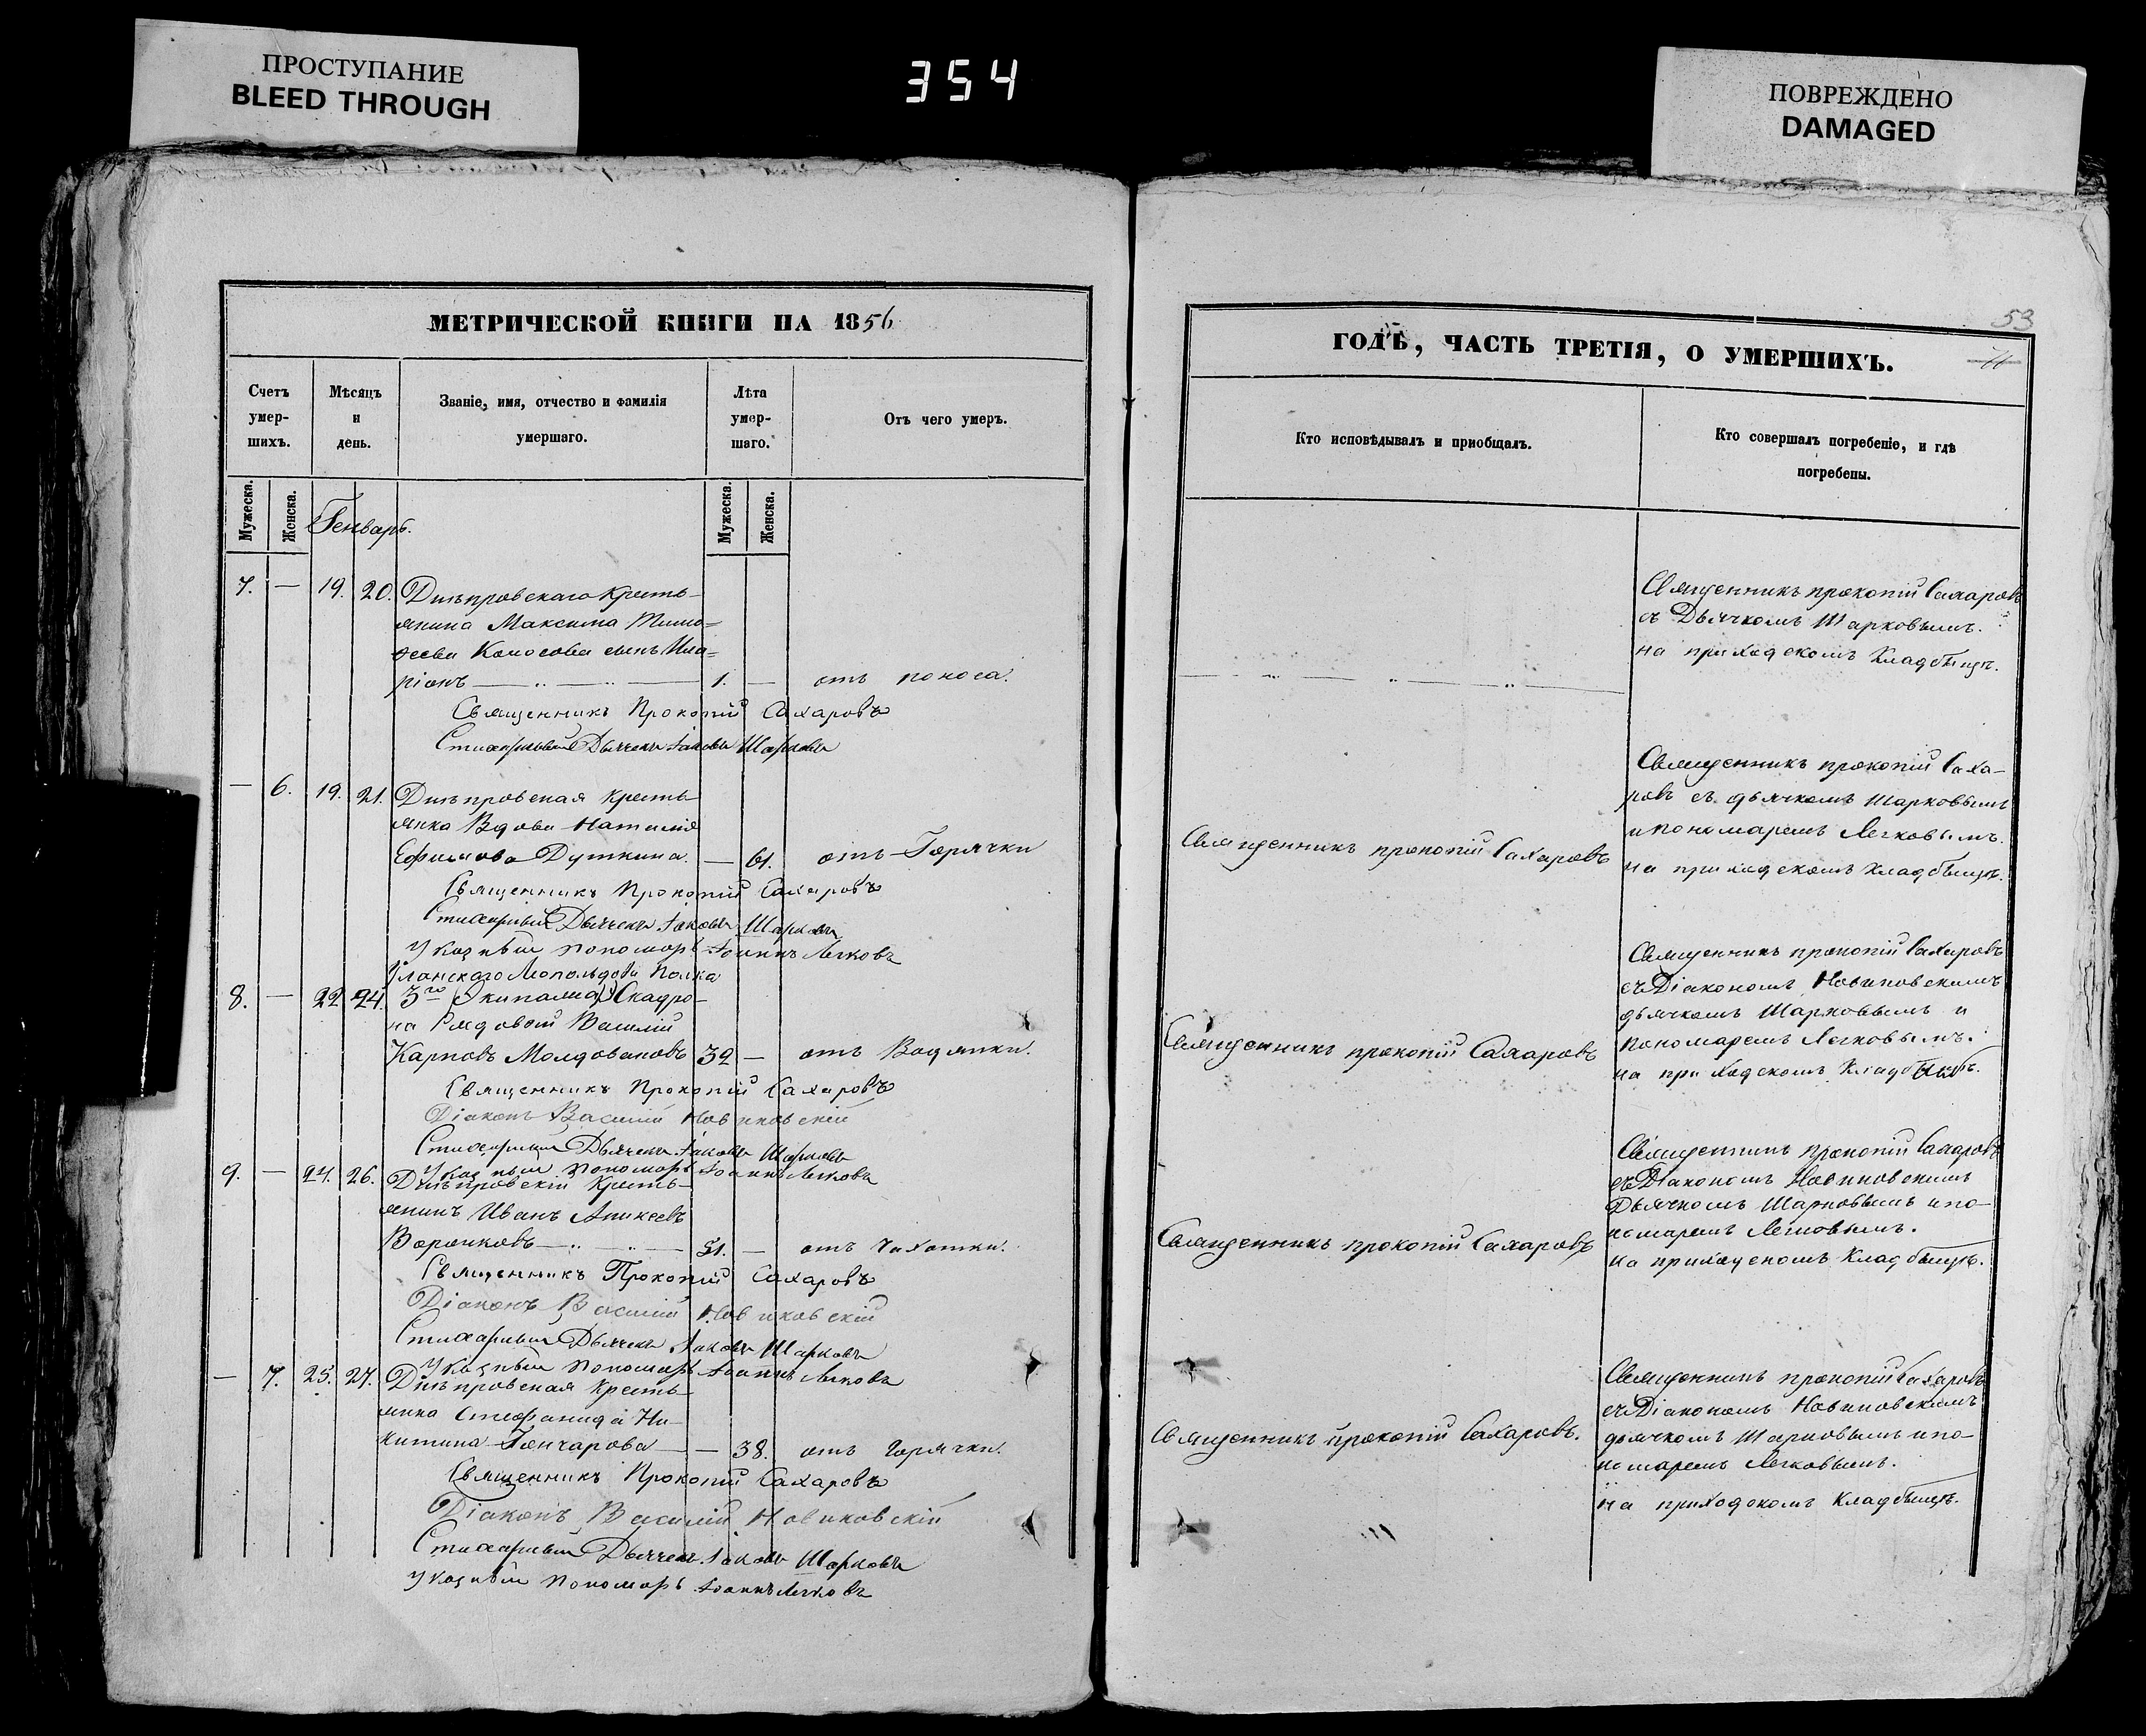 ПРОСТУПАНИЕ
BLEED THROUGH
354
ПОВРЕЖДЕНО
DAMAGED
МЕТРИЧЕСКОЙ КНИГИ НА 1856
Счетъ умер-шихъ.
Мѣсяцъ и день.
Званіе, имя, отчество и фамилія умершаго.
Лѣта умер-шаго.
Отъ чего умеръ.
Мужеска.
Женска.
Генварь.
Мужеска.
Женска.
7. — 19. 20. Днѣпровскаго кресть-
янина Максима Тимо=
ѳеева Колосова сынъ Ила=
ріонъ — 1. — отъ поноса.
Священникъ Прокопій Сахаровъ
Стихарный Дьячекъ Іаковъ Шарковъ
— 6. 19. 21. Днѣпровская кресть-
янка Вдова Наталія
Ефимова Дуткина. — 61. отъ Горячки
Священникъ Прокопій Сахаровъ
Стихарный Дьячекъ Іаковъ Шарковъ
Указный пономарь Іоаннъ Легковъ
Уланскаго Леопольдова Полка
8. — 22 24. 3го Эскадро-
на Рядовой Василій
Карповъ Молдовановъ 39 — отъ Водянки.
Священникъ Прокопій Сахаровъ
Діаконъ Василій Новиковскій
Стихарный Дьячекъ Іаковъ Шарковъ
Указный пономарь Іоаннъ Легковъ
9. — 24. 26. Днѣпровскій Кресть-
янинъ Иванъ Аникеевъ
Воронковъ — 51. — отъ Чахотки.
Священникъ Прокопій Сахаровъ
Діаконъ Василій Новиковскій
Стихарный Дьячекъ Іаковъ Шарковъ
Указный пономарь Іоаннъ Легковъ
— 7. 25. 27. Днѣпровская кресть-
янка Стефанида Ни-
китина Гончарова — 38. отъ горячки.
Священникъ Прокопій Сахаровъ
Діаконъ Василій Новиковскій
Стихарный Дьячекъ Іаковъ Шарковъ
Указный пономарь Іоаннъ Легковъ
53
ГОДЪ, ЧАСТЬ ТРЕТІЯ, О УМЕРШИХЪ.
Кто исповѣдывалъ и приобщалъ.
Кто совершалъ погребеніе, и гдѣ
погребены.
Священникъ прокопій Сахаровъ
съ Дьячкомъ Шарковымъ.
на приходскомъ Кладбищѣ.
Священникъ прокопій Сахаровъ
Священникъ прокопій Саха-
ровъ съ дьячкомъ Шарковымъ
и пономаремъ Легковымъ.
на приходскомъ кладбищѣ.
Священникъ прокопій Сахаровъ
Священникъ прокопій Сахаровъ
съ Діакономъ Новиковскимъ
дьячкомъ Шарковымъ и
пономаремъ Легковымъ.
на приходскомъ Кладбищѣ.
Священникъ прокопій Сахаровъ
Священникъ прокопій Сахаровъ
съ Діакономъ Новиковскимъ
Дьячкомъ Шарковымъ и по-
номаремъ Легковымъ.
на приходскомъ Кладбищѣ.
Священникъ прокопій Сахаровъ.
Священникъ прокопій Сахаровъ
съ Діакономъ Новиковскимъ
дьячкомъ Шарковымъ и по-
номаремъ Легковымъ.
на приходскомъ Кладбищѣ.